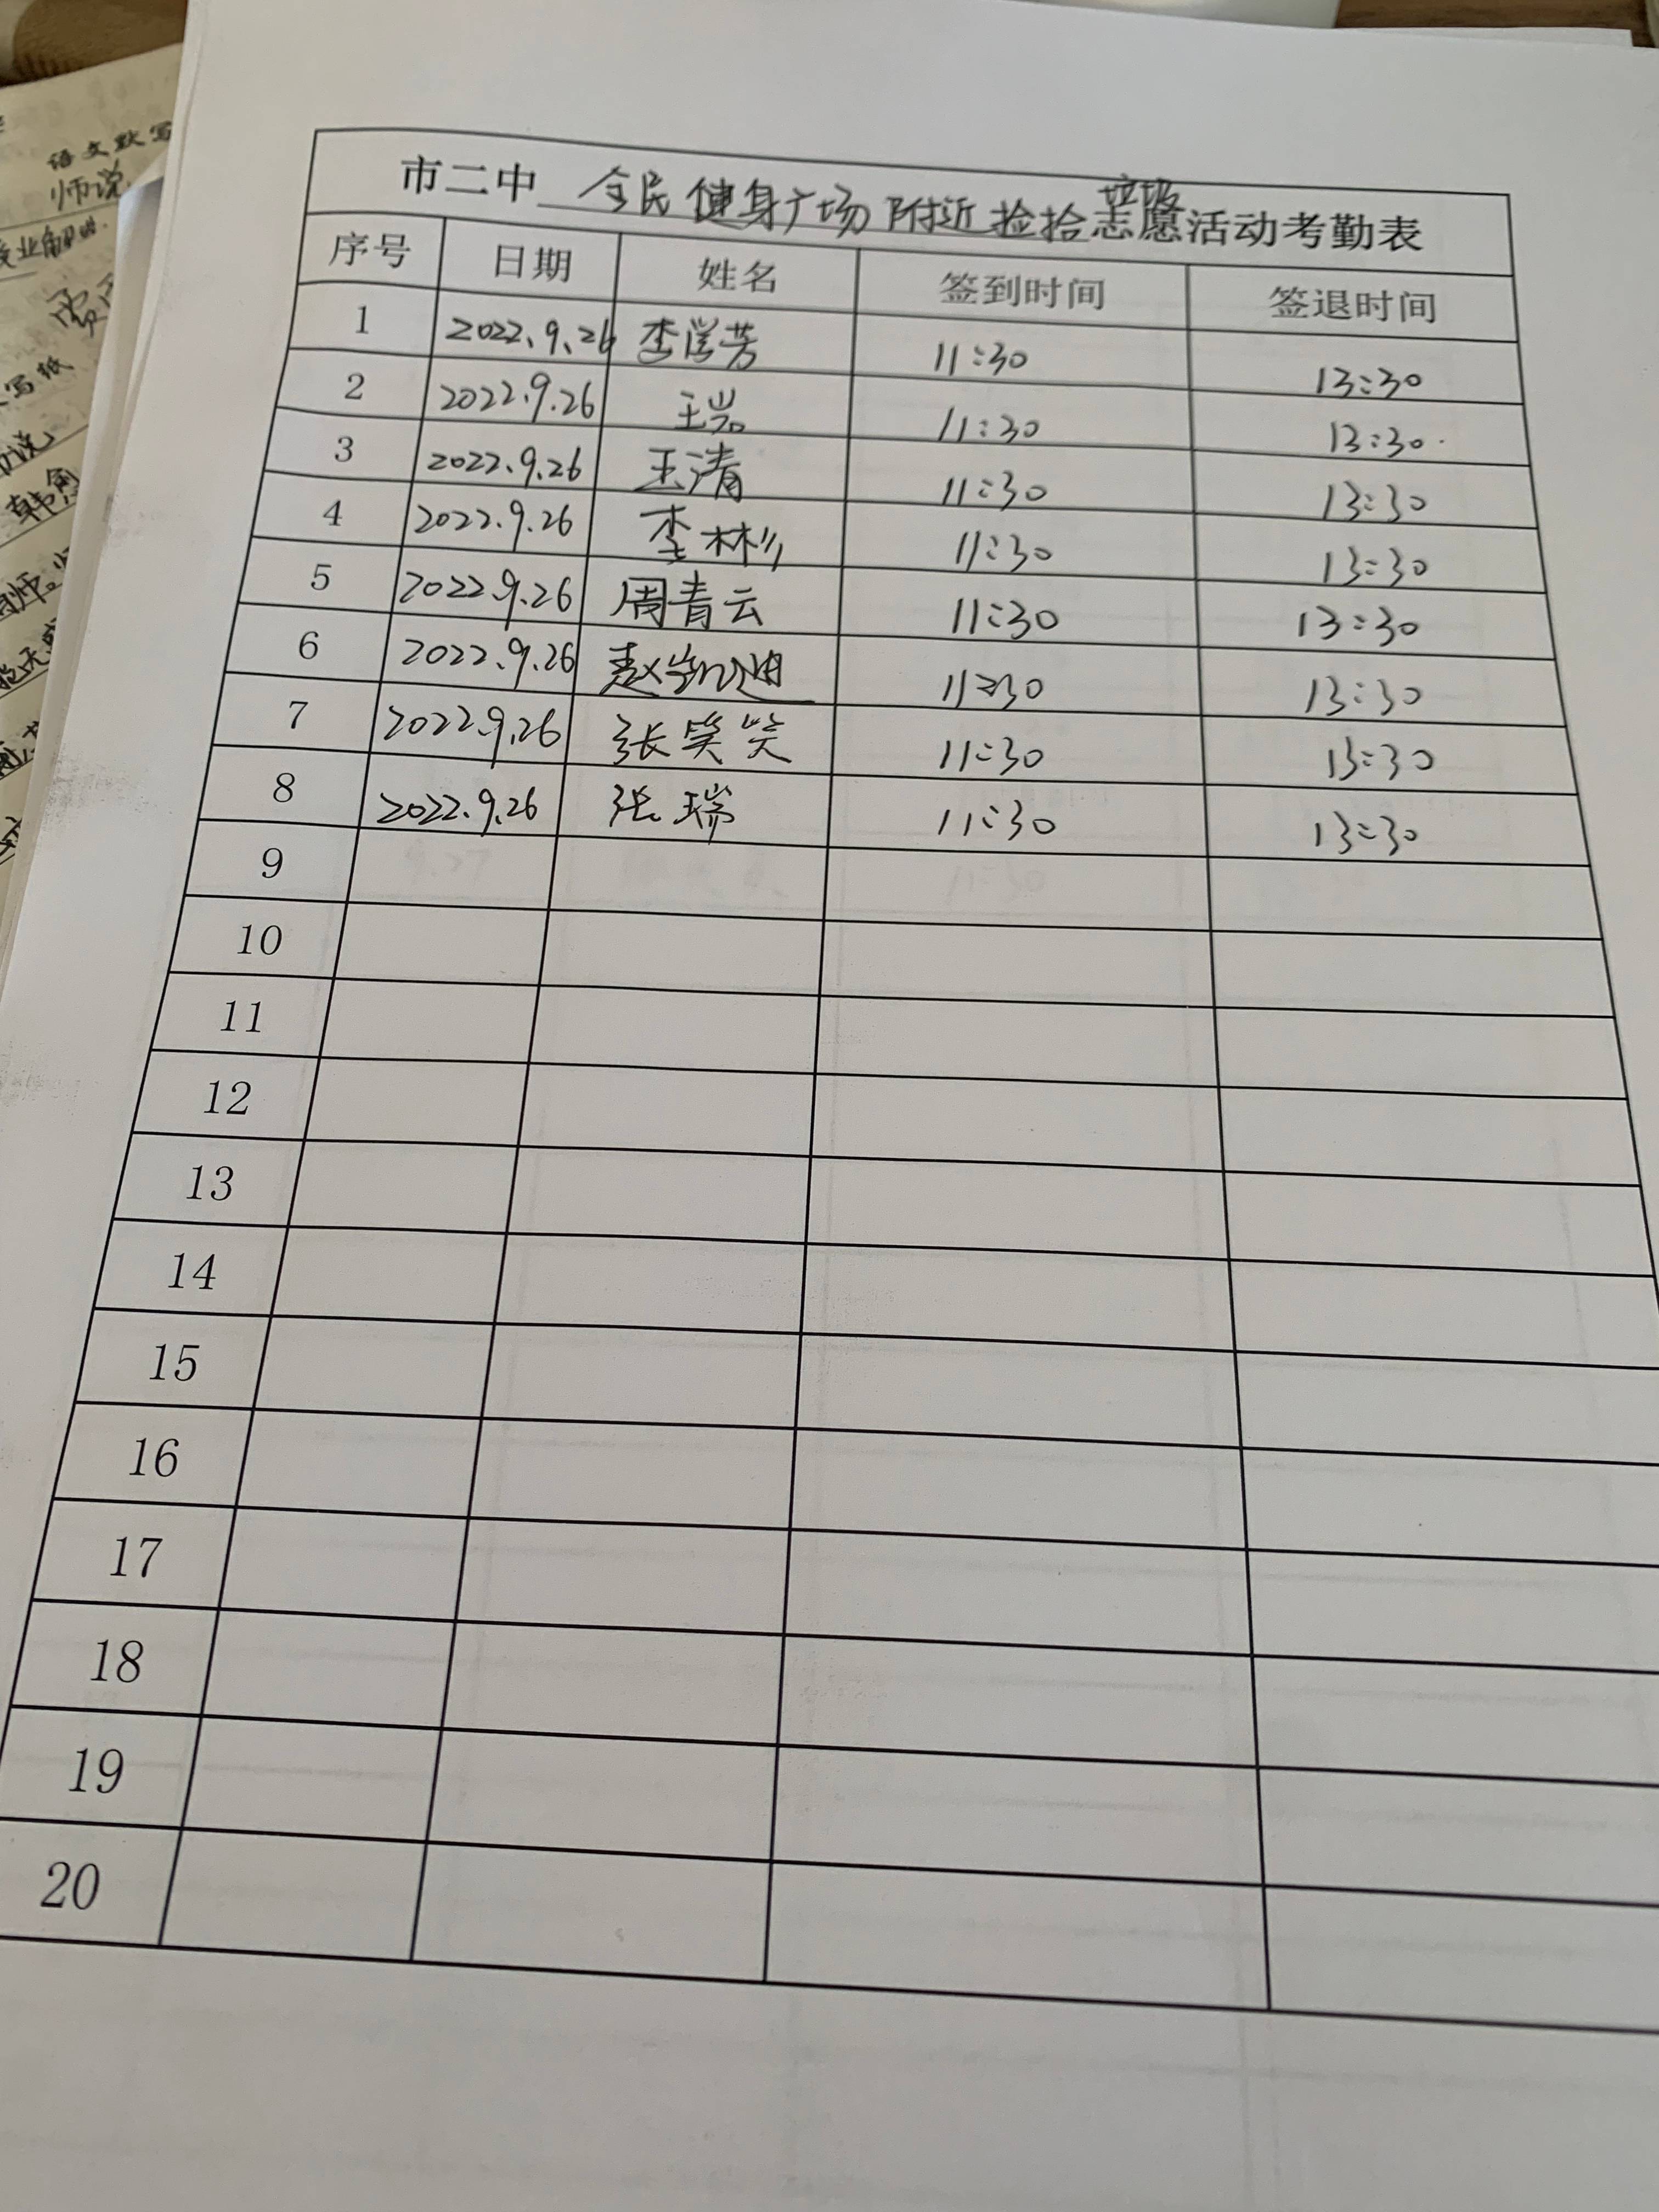 语文默写
师说
市二中 全民健身广场附近捡拾垃圾志愿活动考勤表
序号 日期 姓名 签到时间 签退时间
1 2022.9.26 李学芳 11:30 13:30
2 2022.9.26 王岩 11:30 13:30
3 2022.9.26 王清 11:30 13:30
4 2022.9.26 李林杉 11:30 13:30
5 2022.9.26 周青云 11:30 13:30
6 2022.9.26 赵凯迪 11:30 13:30
7 2022.9.26 张笑笑 11:30 13:30
8 2022.9.26 张瑞 11:30 13:30
9
10
11
12
13
14
15
16
17
18
19
20